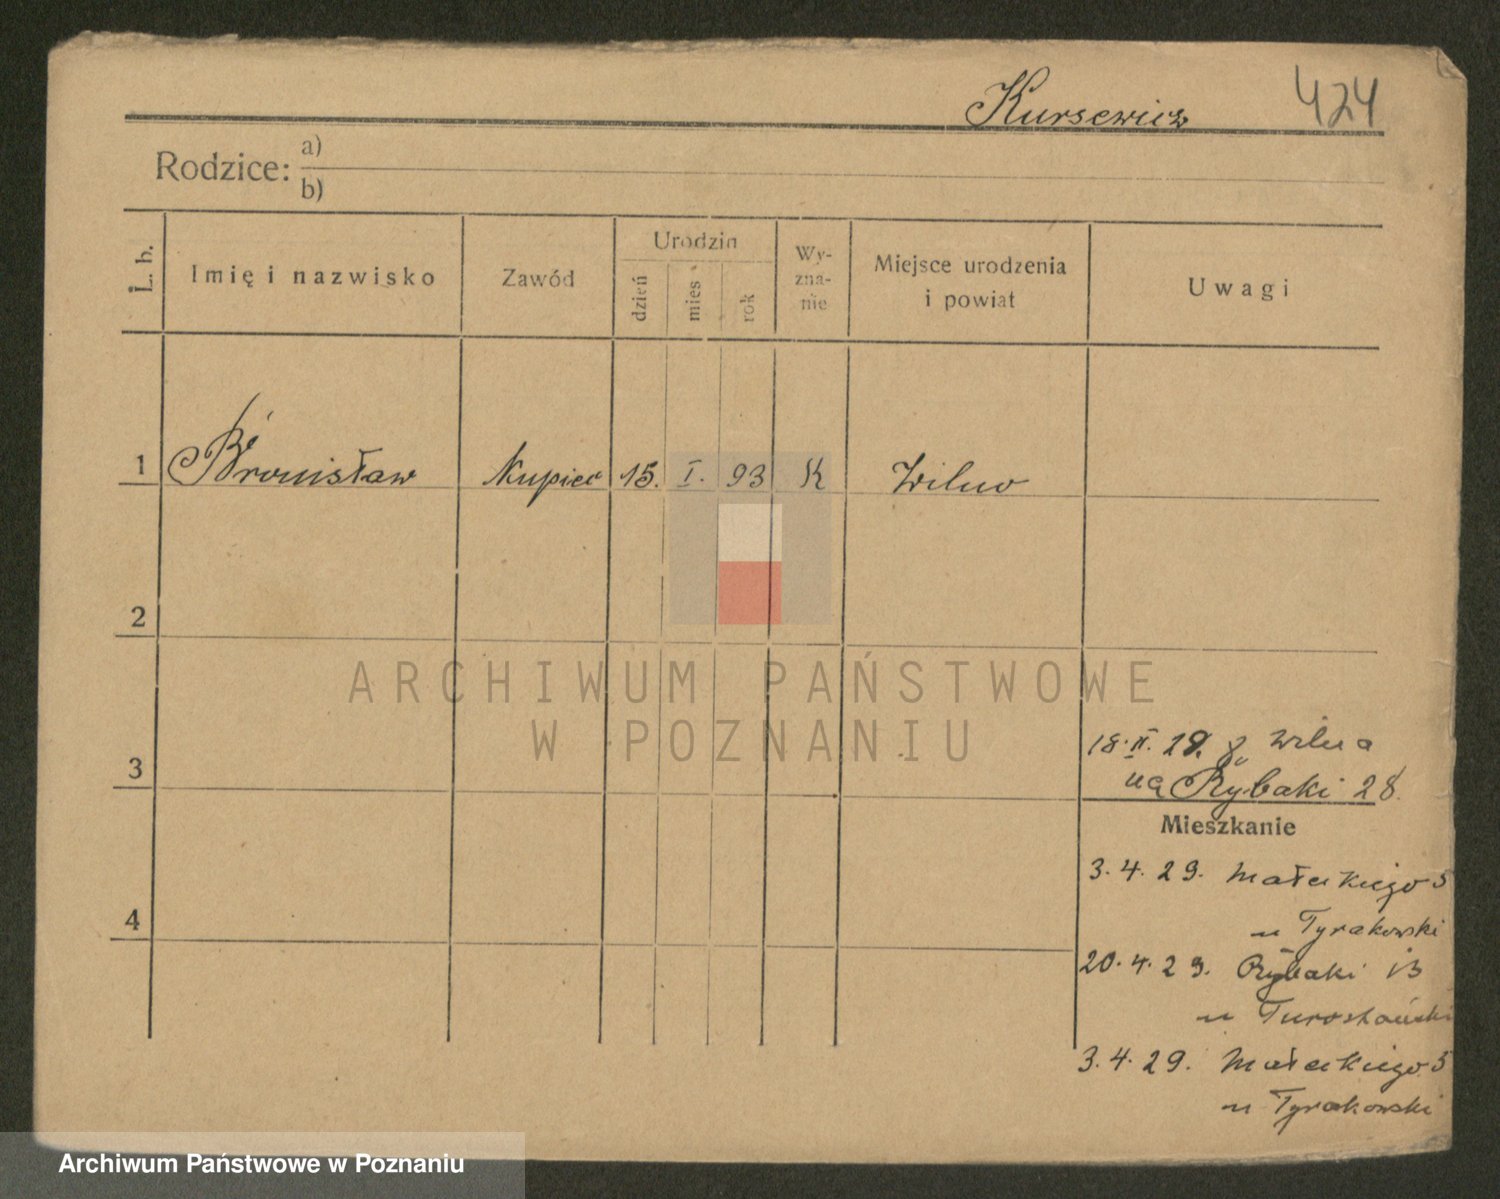 Kursewicz 424
Rodzice: a)
b)
L. b.
Imię i nazwisko
Zawód
Urodzin
dzień
mies
rok
Wy-
zna-
nie
Miejsce urodzenia
i powiat
Uwagi
1 Bronisław Kupiec 15. I. 93 K Wilno
2
3
4
18. II. 29. z Wilna
na Rybaki 28.
Mieszkanie
3. 4. 29. Małeckiego 5
u Tyrakowski
20. 4. 29. Rybaki 13
u
3. 4. 29. Małeckiego 5
u Tyrakowski
ARCHIWUM PAŃSTWOWE
W POZNANIU
Archiwum Państwowe w Poznaniu